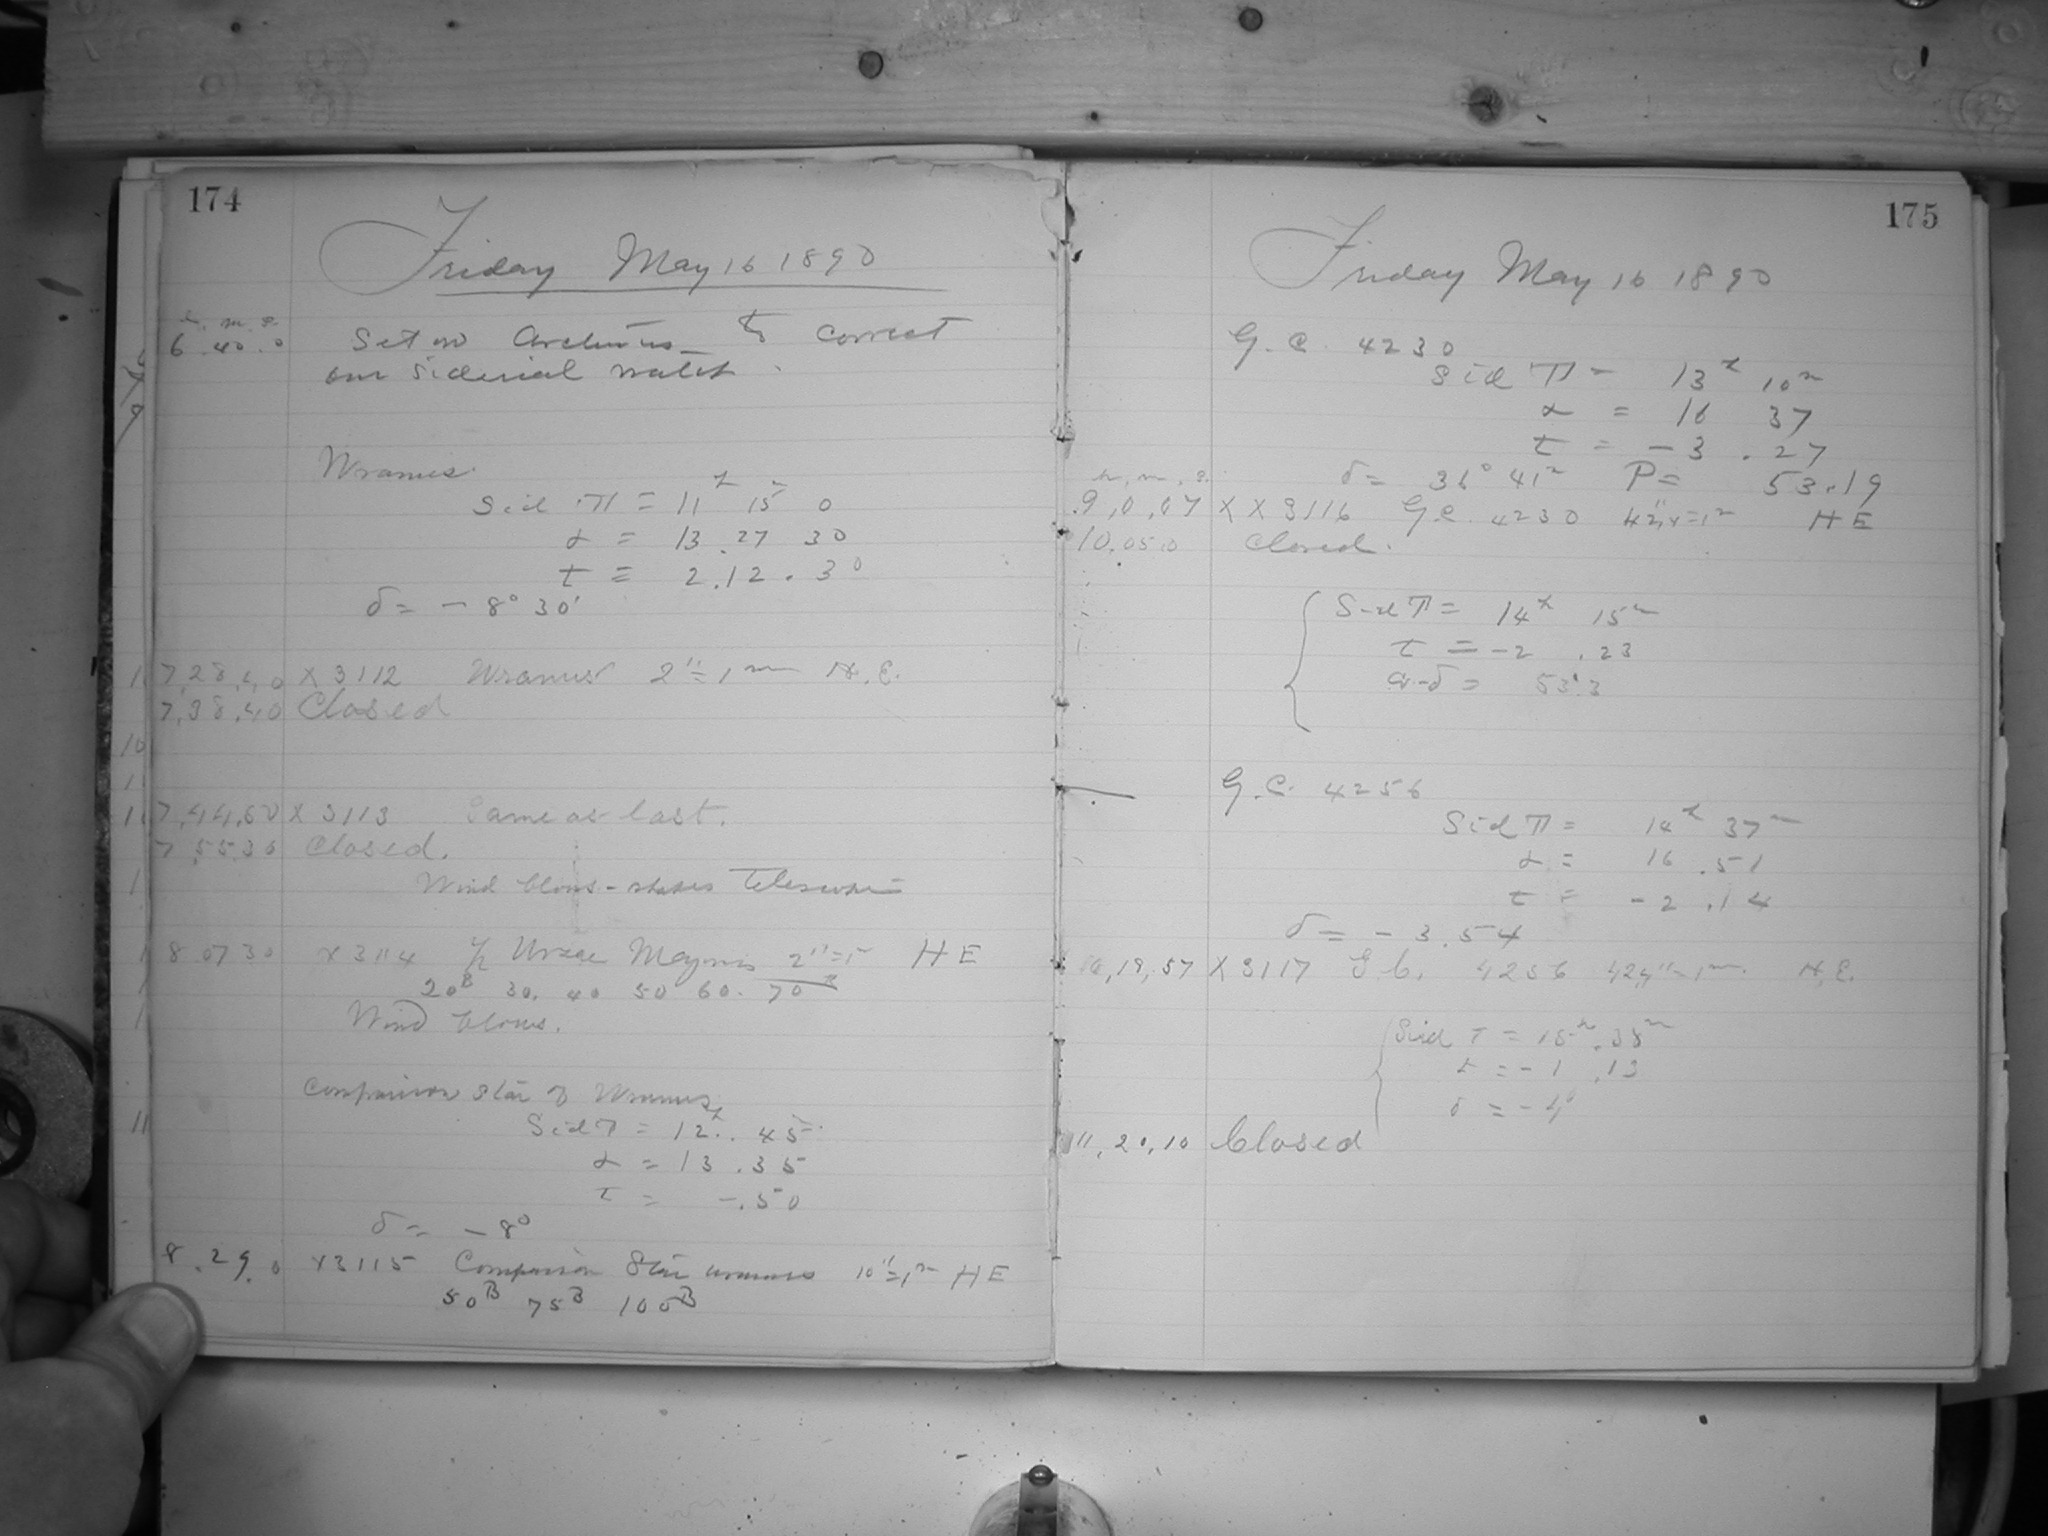 174
Friday May 16 1890
h. m. s.
6 40 0 Set on Arcturus to correct
our Siderial watch.
Uranus
Sid T = 11h 15m 0
α = 13 . 27 30
t = 2 . 12 . 30
δ = - 8° 30'
7,28,40 X 3112 Uranus 2" = 1m H.E.
7,38,40 Closed
7,44,60 X 3113 Same as last.
7,55,30 Closed.
Wind blows - shakes Telescope
8 07 30 X 3114 Ursae Majoris 2" = 1m HE
20B 30. 40 50 60. 70
Wind blows.
Comparison Star of Uranus
Sid T = 12h . 45m
α = 13 . 35
τ = - . 50
δ = - 8°
8 . 29 . 0 X3115 Comparison Star uranus 10" = 1m HE
50B 75B 100B
175
Friday May 16 1890
G. C. 4230
Sid T = 13h 10m
α = 16 37
t = - 3 . 27
δ = 36° 41m P = 53.19
h, m, s.
9,0,07 X X 3116 G.C. 4230 42,4" = 1m HE
10,05,0 Closed.
Sid T = 14h 15m
τ = -2 . 23
53.3
G. C. 4256
Sid T = 14h 37m
α = 16 . 51
τ = - 2 . 14
δ = - 3.54
10,19,57 X 3117 G.C. 4256 42,4" = 1m. H.E.
Sid T = 15h . 38m
t = - 1 . 13
δ = - 4°
11,20,10 Closed